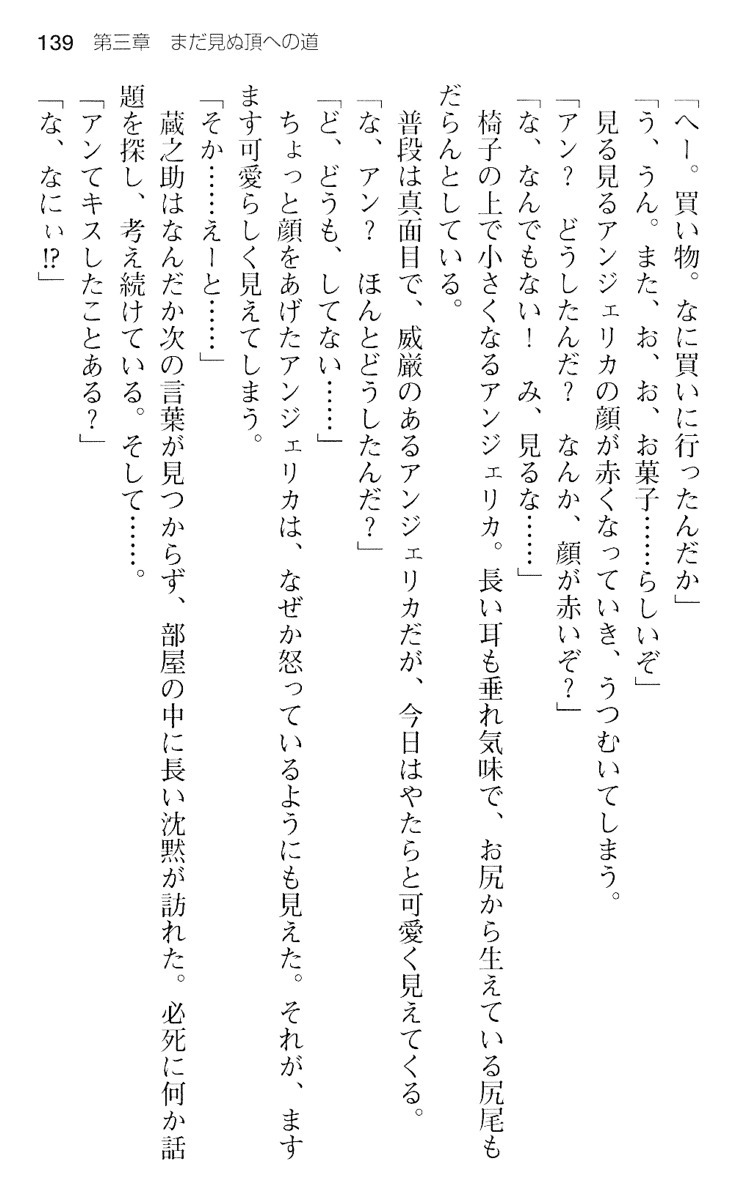 139 第三章　まだ見ぬ頂への道
「へー。買い物。なに買いに行ったんだか」
「う、うん。また、お、お、お菓子……らしいぞ」
　見る見るアンジェリカの顔が赤くなっていき、うつむいてしまう。
「アン？　どうしたんだ？　なんか、顔が赤いぞ？」
「な、なんでもない！　み、見るな……」
　椅子の上で小さくなるアンジェリカ。長い耳も垂れ気味で、お尻から生えている尻尾も
だらんとしている。
　普段は真面目で、威厳のあるアンジェリカだが、今日はやたらと可愛く見えてくる。
「な、アン？　ほんとどうしたんだ？」
「ど、どうも、してない……」
　ちょっと顔をあげたアンジェリカは、なぜか怒っているようにも見えた。それが、ます
ます可愛らしく見えてしまう。
「そか……えーと……」
　蔵之助はなんだか次の言葉が見つからず、部屋の中に長い沈黙が訪れた。必死に何か話
題を探し、考え続けている。そして……。
「アンてキスしたことある？」
「な、なにぃ!?」